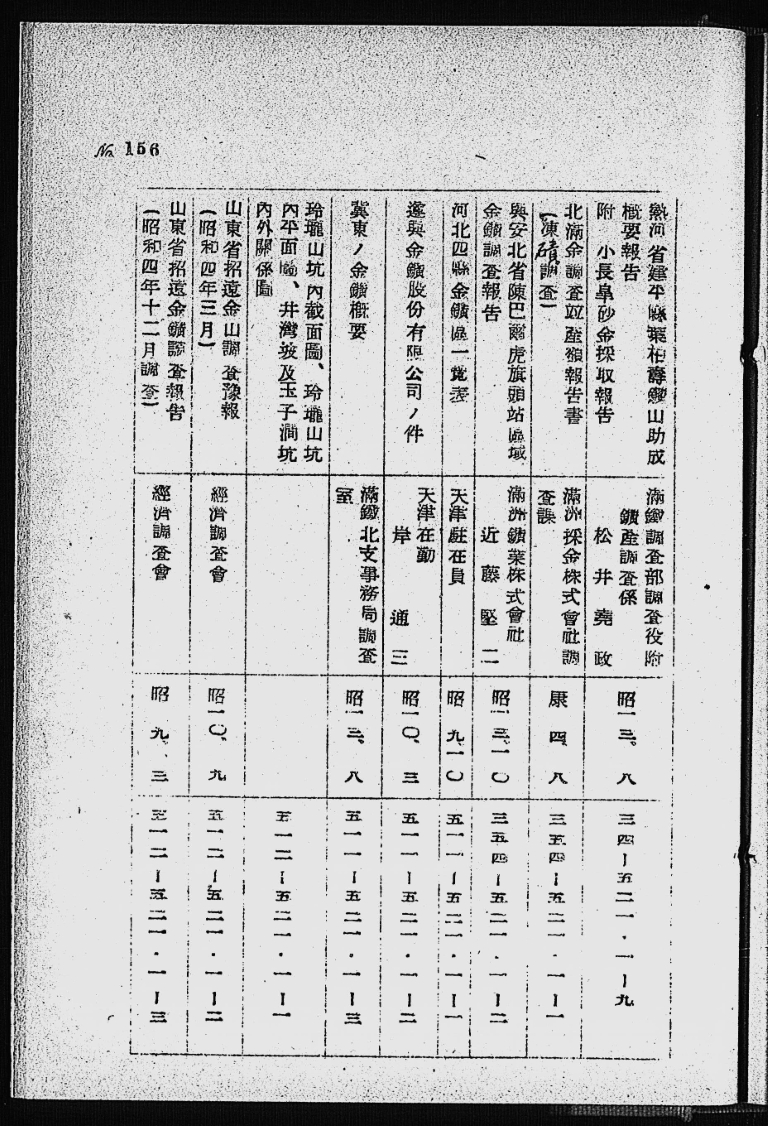 No. 156
熱河省建平縣葉柏壽鑛山助成
概要報告
附 小長皐砂金採取報告
滿鐵調査部調査役附
鑛産調査係
松井堯政
昭一三、八
三四ー五二一・一ー九
北滿金調査竝産額報告書
(凍磧調査)
滿洲採金株式會社調
査課
康四、八
三五四ー五二一・一ー一
興安北省陳巴爾虎旗頭站區域
金鑛調査報告
滿洲鑛業株式會社
近藤堅二
昭一三、一〇
三五四ー五二一・一ー二
河北四縣金鑛區一覽表
天津駐在員
昭九、一〇
五一一ー五二一・一ー一
遵興金鑛股份有限公司ノ件
天津在勤
岸通三
昭一〇、三
五一一ー五二一・一ー二
冀東ノ金鑛概要
滿鐵北支事務局調査
室
昭一三、八
五一一ー五二一・一ー三
玲瓏山坑內截面圖、玲瓏山坑
內平面圖、井灣坡及玉子澗坑
內外關係圖
五一二ー五二一・一ー一
山東省招遠金山調査豫報
(昭和四年三月)
經濟調査會
昭一〇、九
五一二ー五二一・一ー二
山東省招遠金鑛調査報告
(昭和四年十二月調査)
經濟調査會
昭九、三
五一二ー五二一・一ー三